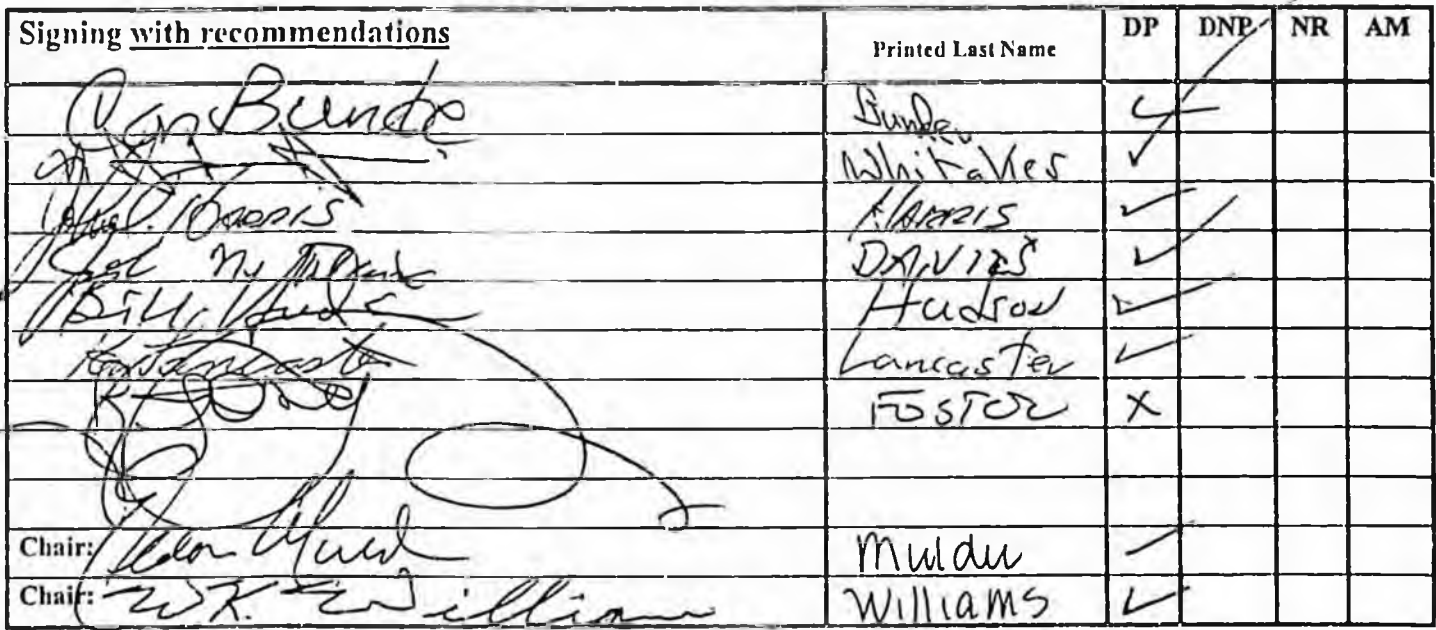 Signing with recommendations Printed Last Name DP DNP NR AM
Con Bunde Bunde ✓
Whitaker ✓
Harris Harris ✓
DAVIES ✓
Bill Hudson Hudson ✓
Ken Lancaster Lancaster ✓
FOSTER X
Chair: Eldon Mulder Mulder ✓
Chair: W.K. Williams Williams ✓